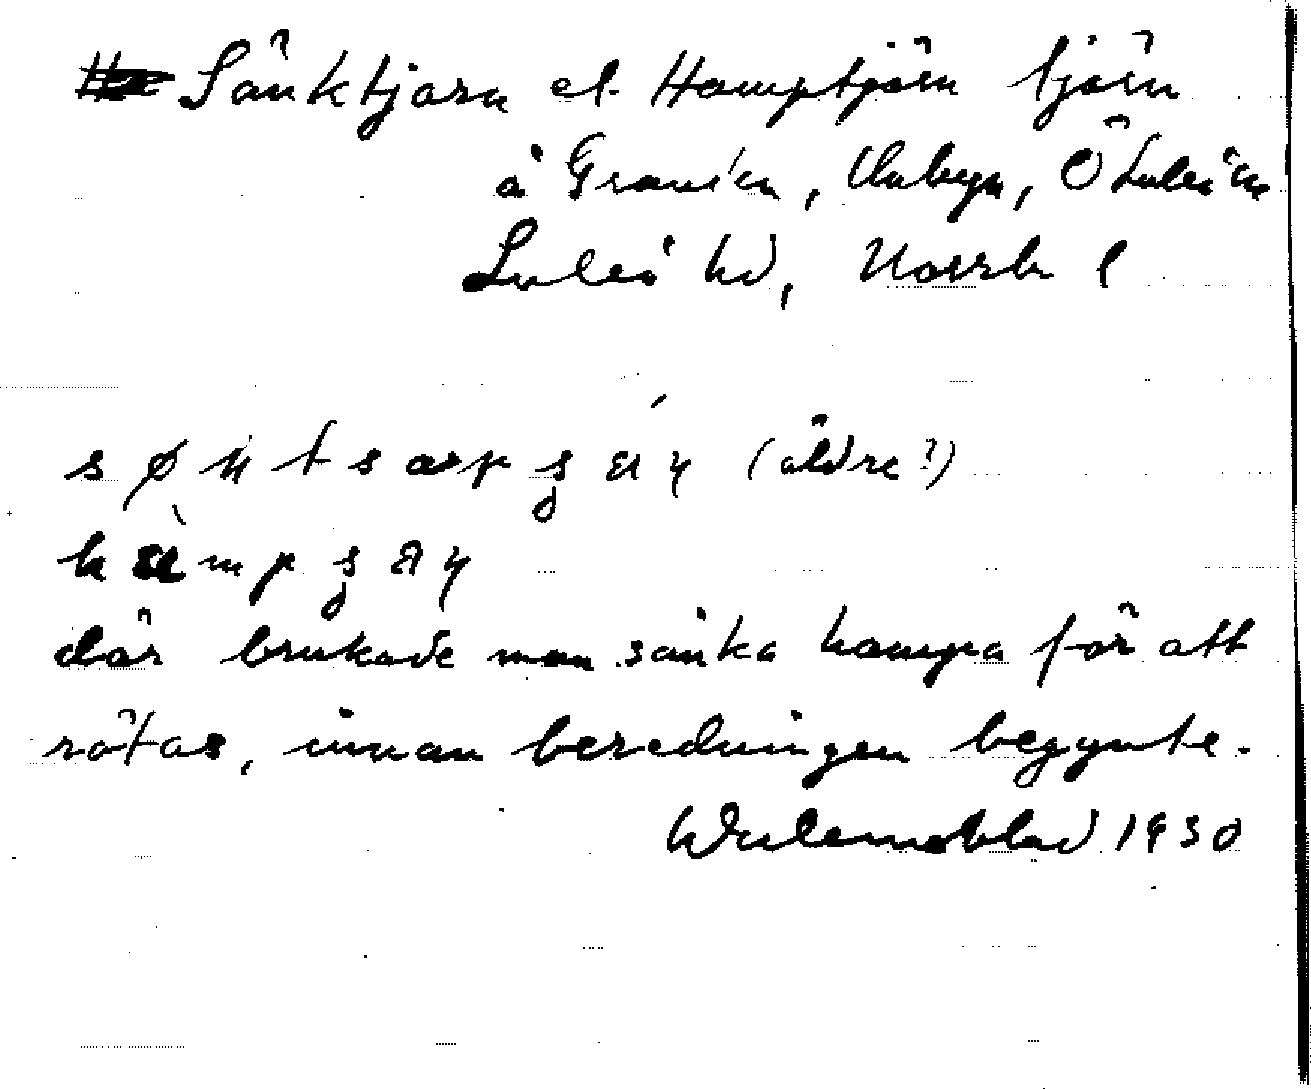 Sänktjärn el. Hamptjärn tjärn
å Granön, Unbyn, Ö Luleå sn
Luleå hd, Norrb l
(äldre?)
där brukade man sänka hampa för att
rötas, innan beredningen begynte.
1930